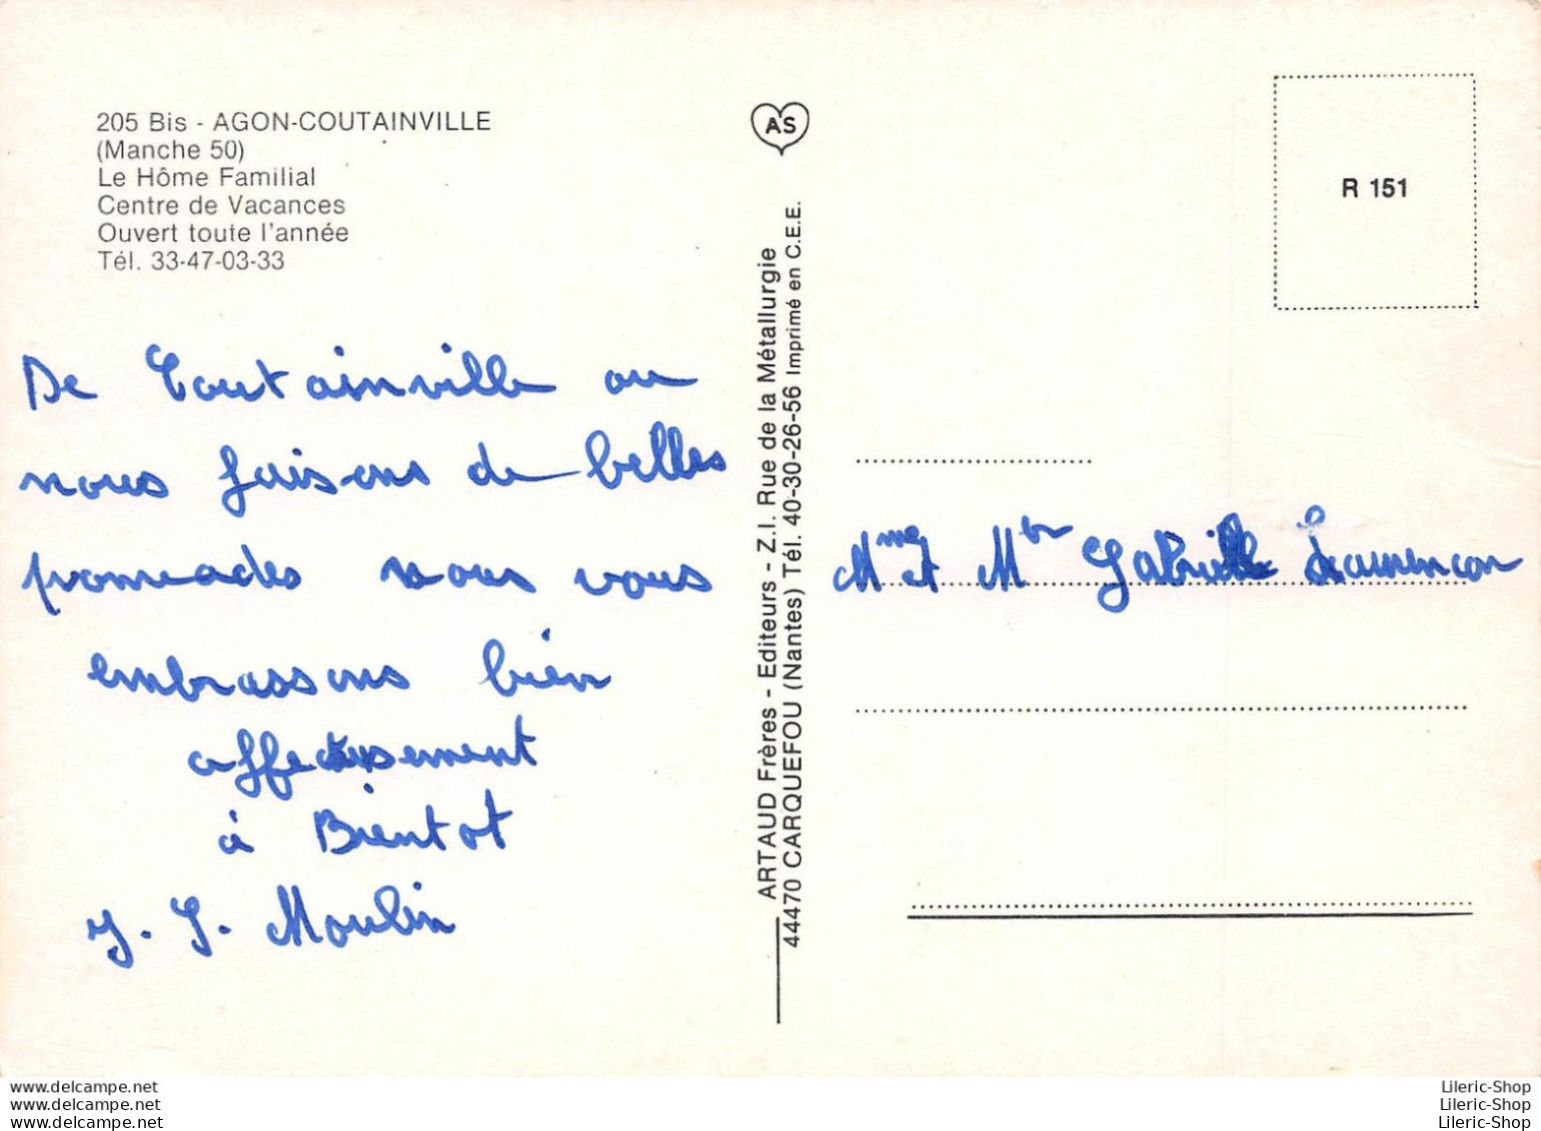 205 Bis - AGON-COUTAINVILLE
(Manche 50)
Le Hôme Familial
Centre de Vacances
Ouvert toute l'année
Tél. 33-47-03-33
De Coutainville ou
nous faisons de belles
promeades nous vous
embrassons bien
affectusement
à Bientot
J. J. Moulin
AS
ARTAUD Frères - Editeurs - Z.I. Rue de la Métallurgie
44470 CARQUEFOU (Nantes) Tél. 40-30-26-56 Imprimé en C.E.E.
R 151
Mme et Mr Gabrielle Laurençon
www.delcampe.net
www.delcampe.net
www.delcampe.net
Lileric-Shop
Lileric-Shop
Lileric-Shop